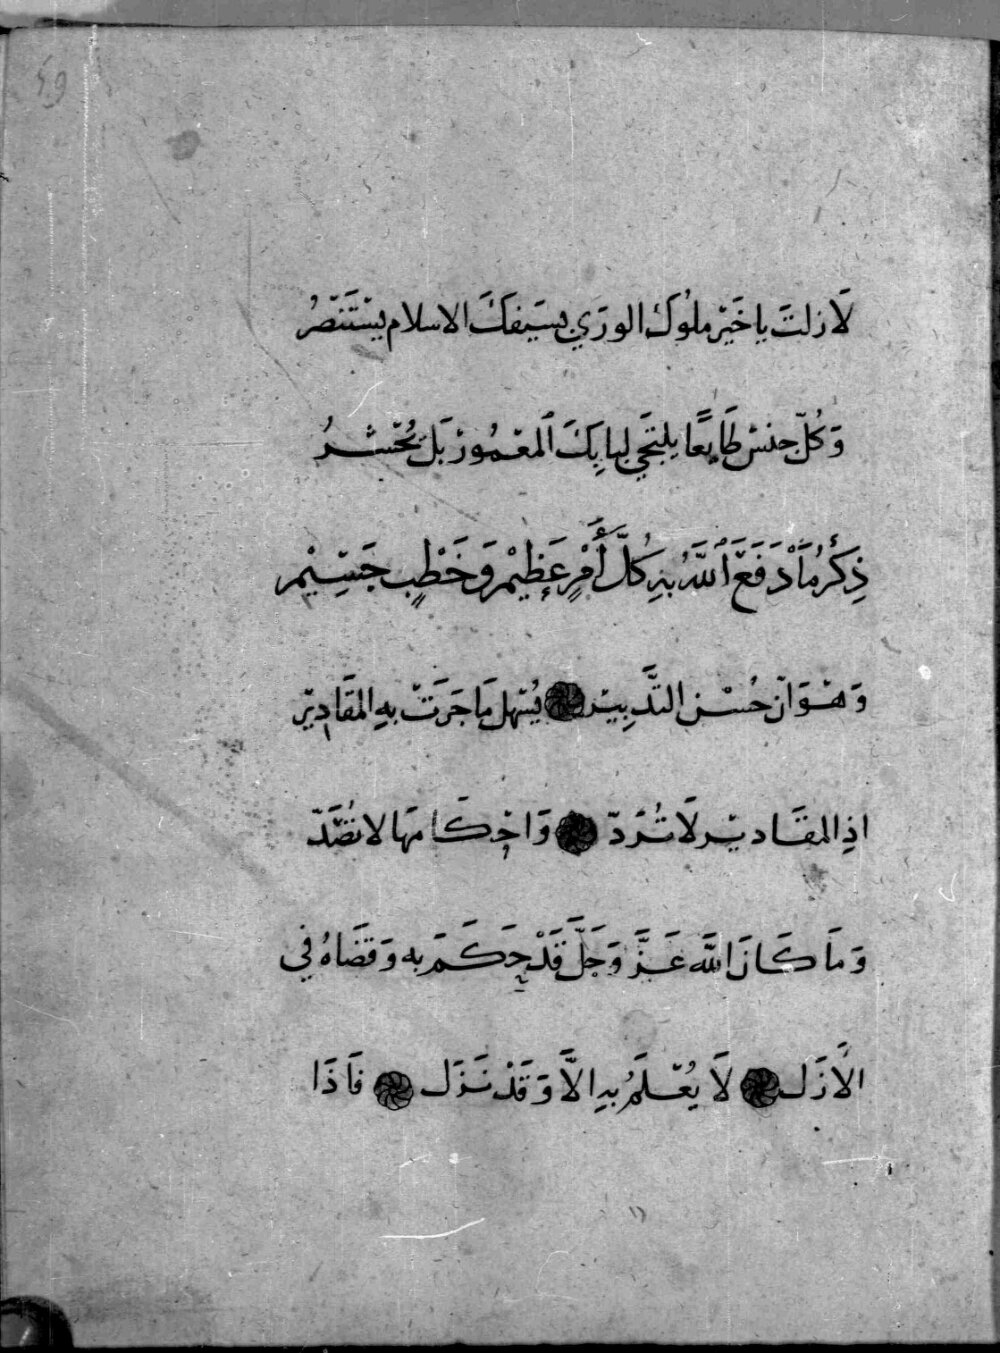 لَا زلتَ يا خَيْر ملُوك الورَي بسَيفكَ الاسلام يسْتَنْصرُ
وَكُلّ جنسْ طَايعًا يلتجَي لبابِكَ اَلمعْمُورْ بَلْ يُحْشَرُ
ذِكْرُ مَا دَفَعَ اَللَّهُ بهِ كُلَّ أَمْرٍ عَظِيْمْ وَخَطْبٍ جَسِيْم
وَهْوَ انّ حُسْن التَّدبيرْ يُسْهل مَا جَرَتْ بهِ المقَاديرْ
اذِ المقَاديْر لَا تُرَدّ وَاحْكَامهَا لا تُصَدّ
وَمَا كَانَ اللَّه عَزَّ وَجَلَّ قَدْ حَكَمَ به وَقضَاهُ في
الأَزَل لَا يُعْلَمُ بهِ الاَّ وَقَدْ نَزَل فَاذَا